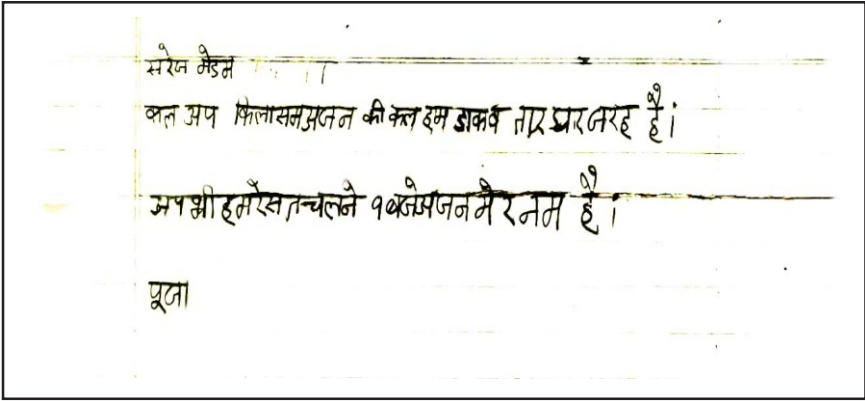 सरेज मेडम
कल अप किलासमअजन की कल हम डाकव तार घार जरह है।
अप भी हमरेसतचलने १ बजेअजन मेरनम है।
पूजा